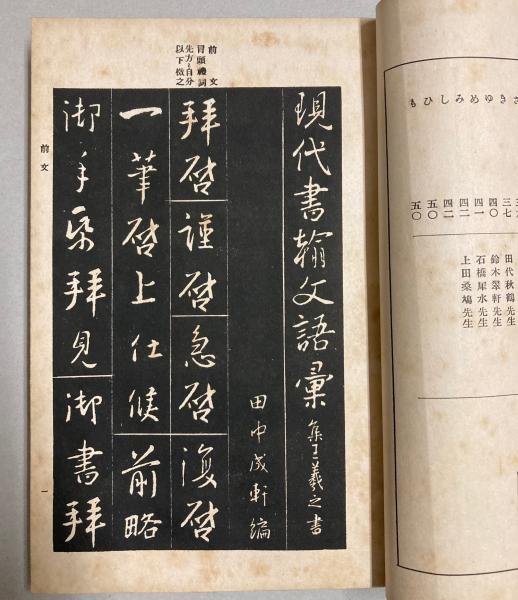 さきゆめみしひも
三七
四〇
四一
四二
四二
五〇
五〇
田代秋鶴先生
鈴木翠軒先生
石橋犀水先生
上田桑鳩先生
前文
冒頭禮詞
先方と自分
以下倣之
現代書翰文語彙 集王羲之書
田中成軒編
拝啓 謹啓 急啓 復啓
一筆啓上仕候 前略
御手紙拝見 御書拝
前文
一